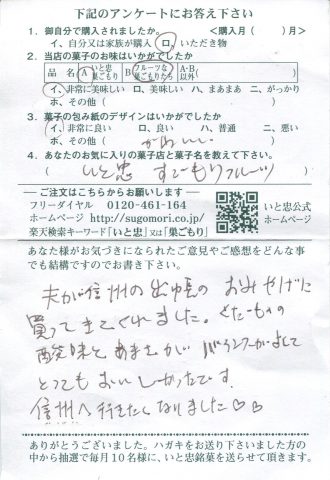 下記のアンケートにお答え下さい
1. 御自分で購入されましたか。 <購入月( )月>
イ、自分又は家族が購入 ロ、いただき物
2. 当店の菓子のお味はいかがでしたか
品 名 A いと忠巣ごもり B フルーツな巣ごもりたち A・B以外
イ、非常に美味しい ロ、美味しい ハ、まあまあ ニ、がっかり
ホ、その他( )
3. 菓子の包み紙のデザインはいかがでしたか
イ、非常に良い ロ、良い ハ、普通 ニ、悪い
ホ、その他( かわいい )
4. あなたのお気に入りの菓子店と菓子名を教えて下さい。
( いと忠 すごもりフルーツ )
ご注文はこちらからお願いします
フリーダイヤル 0120-461-164
ホームページ http://sugomori.co.jp/
楽天検索キーワード「いと忠」又は「巣ごもり」
いと忠公式
ホームページ
あなた様がお気づきになられたご意見やご感想をどんな事
でも結構ですのでお書き下さい。
夫が信州の出張のおみやげに
買ってきてくれました。くだものの
酸味とあまさが バランスがよくて
とってもおいしかったです。
信州へ行きたくなりました♡♡
ありがとうございました。ハガキをお送り下さいました方の
中から抽選で毎月10名様に、いと忠銘菓を送らせて頂きます。